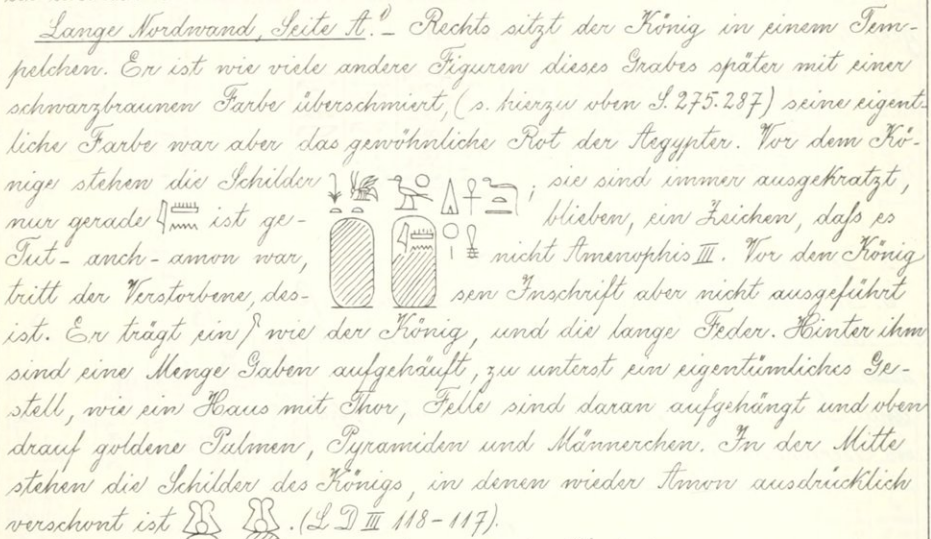 Lange Nordwand, Seite A.¹⁾ – Rechts sitzt der König in einem Tem-
pelchen. Er ist wie viele andere Figuren dieses Grabes später mit einer
schwarzbraunen Farbe überschmiert, (s. hierzu oben S. 275. 287) seine eigent-
liche Farbe war aber das gewöhnliche Rot der Aegypter. Vor dem Kö-
nige stehen die Schilder ; sie sind immer ausgekratzt,
nur gerade 𓇋𓏠𓈖 ist ge- blieben, ein Zeichen, dafs es
Tut-anch-amon war, nicht Amenophis III. Vor den König
tritt der Verstorbene, des- sen Inschrift aber nicht ausgeführt
ist. Er trägt ein 𓋾 wie der König, und die lange Feder. Hinter ihm
sind eine Menge Gaben aufgehäuft, zu unterst ein eigentümliches Ge-
stell, wie ein Haus mit Thor, Felle sind daran aufgehängt und oben
drauf goldene Palmen, Pyramiden und Männerchen. In der Mitte
stehen die Schilder des Königs, in denen wieder Amon ausdrücklich
verschont ist . (L D III 118–117).